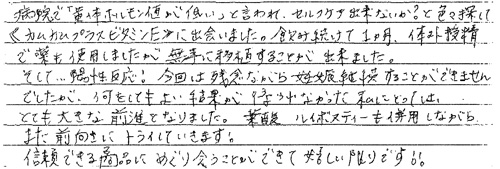 病院で「黄体ホルモン値が低い」と言われ、セルフケア出来ないか?と色々探して
《カムカムプラスビタミンE》に出会いました。飲み続けて1ヵ月、体外授精
で薬も使用しましたが無事に移植することが出来ました。
そして…陽性反応!今回は残念ながら妊娠継続することができません
でしたが、何をしてもよい結果が得られなかった私にとっては、
とても大きな前進となりました。葉酸 ルイボスティーも併用しながら
また前向きにトライしていきます。
信頼できる商品にめぐり会うことができて嬉しい限りです。